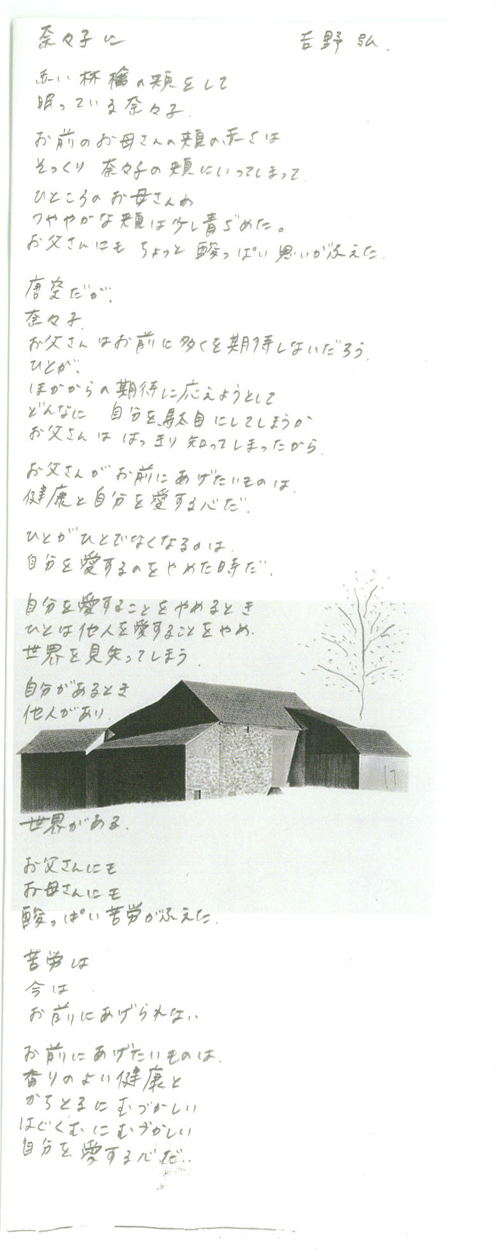 奈々子に　吉野 弘.
赤い林檎の頬をして
眠っている奈々子.
お前のお母さんの頬の赤さは
そっくり 奈々子の頬にいってしまって
ひところのお母さんの
つややかな頬は少し青ざめた。
お父さんにも ちょっと 酸っぱい 思いがふえた.
唐突だが.
奈々子.
お父さんはお前に多くを期待しないだろう.
ひとが、
ほかからの期待に応えようとして
どんなに 自分を駄目にしてしまうか
お父さんは はっきり 知ってしまったから.
お父さんが お前にあげたいものは.
健康と自分を愛する心だ.
ひとがひとでなくなるのは.
自分を愛するのをやめた時だ.
自分を愛することをやめるとき
ひとは他人を愛することをやめ.
世界を見失ってしまう.
自分があるとき
他人があり.
世界がある.
お父さんにも
お母さんにも
酸っぱい苦労がふえた.
苦労は
今は
お前にあげられない
お前にあげたいものは.
香りのよい健康と
かちとるにむづかしい
はぐくむにむづかしい
自分を愛する心だ..